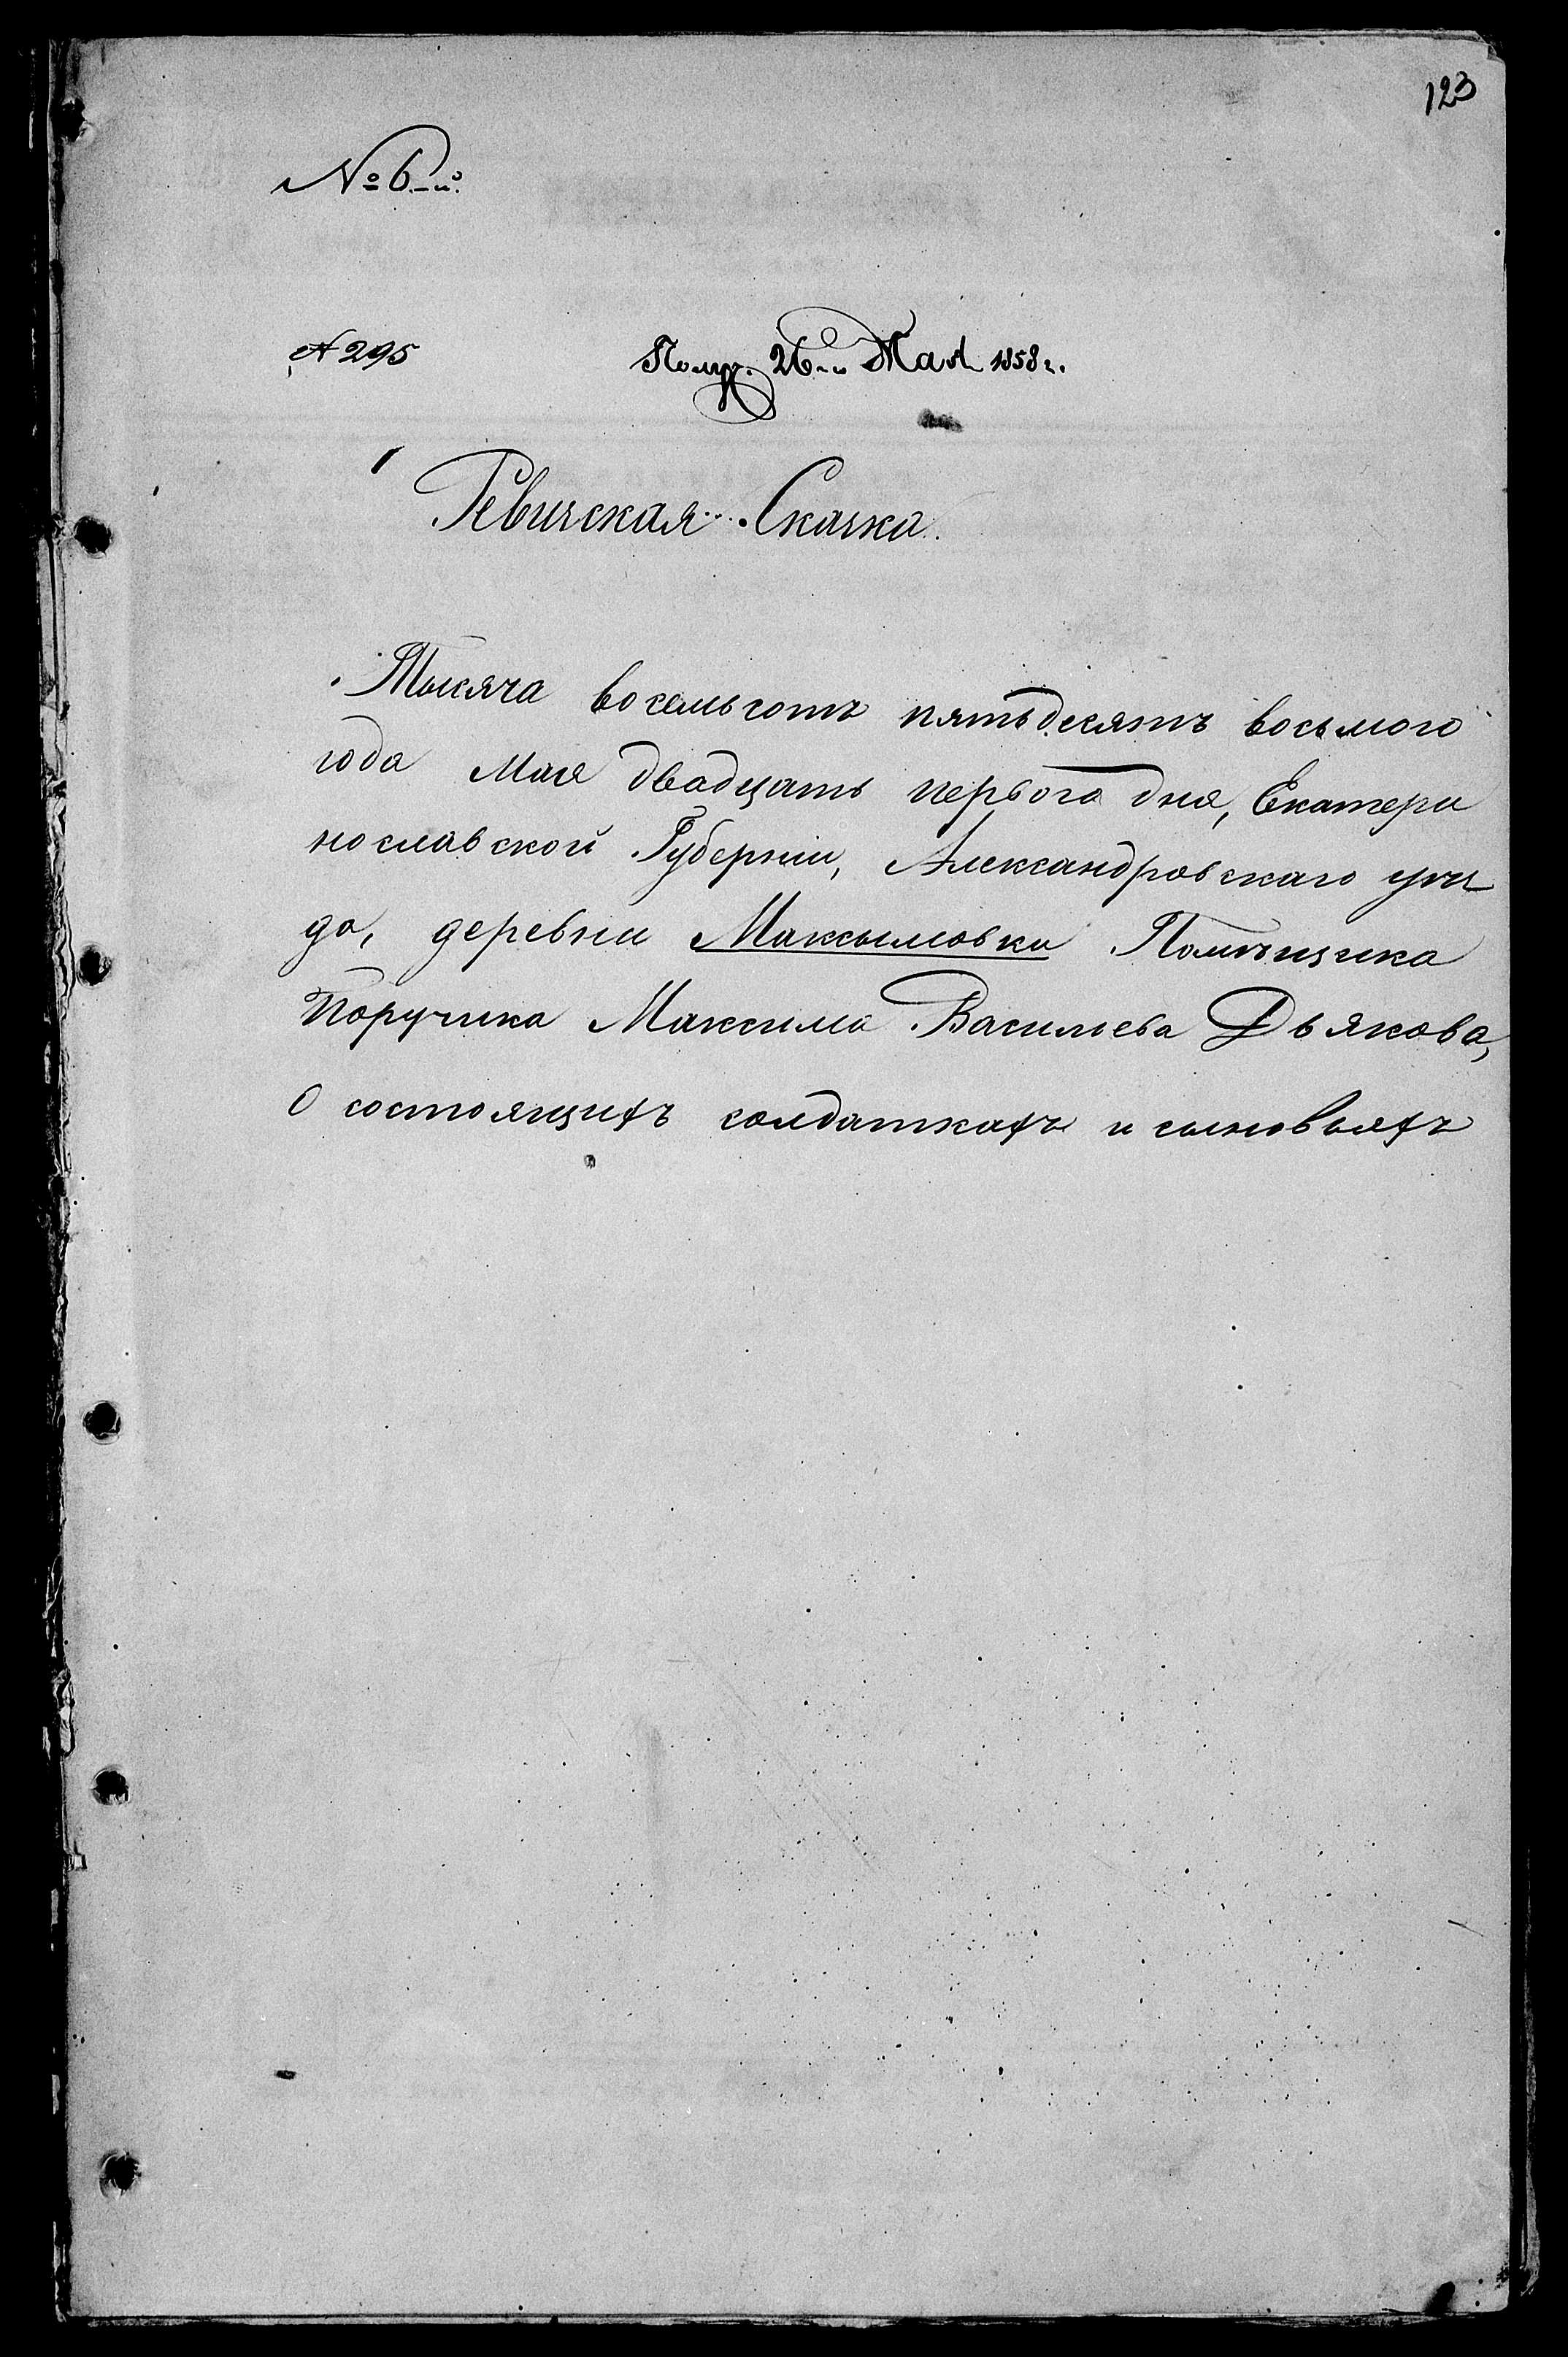 123
№ 6-й.
№ 295
Получ. 26-го Мая 1858 г.
Ревизская Сказка.
Тысяча восемьсотъ пятьдесятъ восьмого
года мая двадцать первого дня, Екатери
нославской Губерніи, Александровскаго уѣз
да, деревни Максымовки Помѣщика
Поручика Максима Васильева Дьякова,
О состоящихъ солдаткахъ и сыновьяхъ